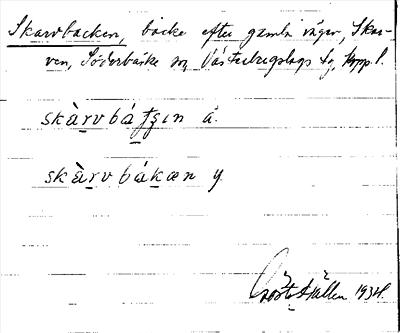 Skarvbacken, backe efter gamla vägen, Skar-
ven, Söderbärke sn, Västerbergslags dg, Kopp. l.
skàrvbáʈʂın ä.
skàrvbákæn y
Gösta Hallén 1934.